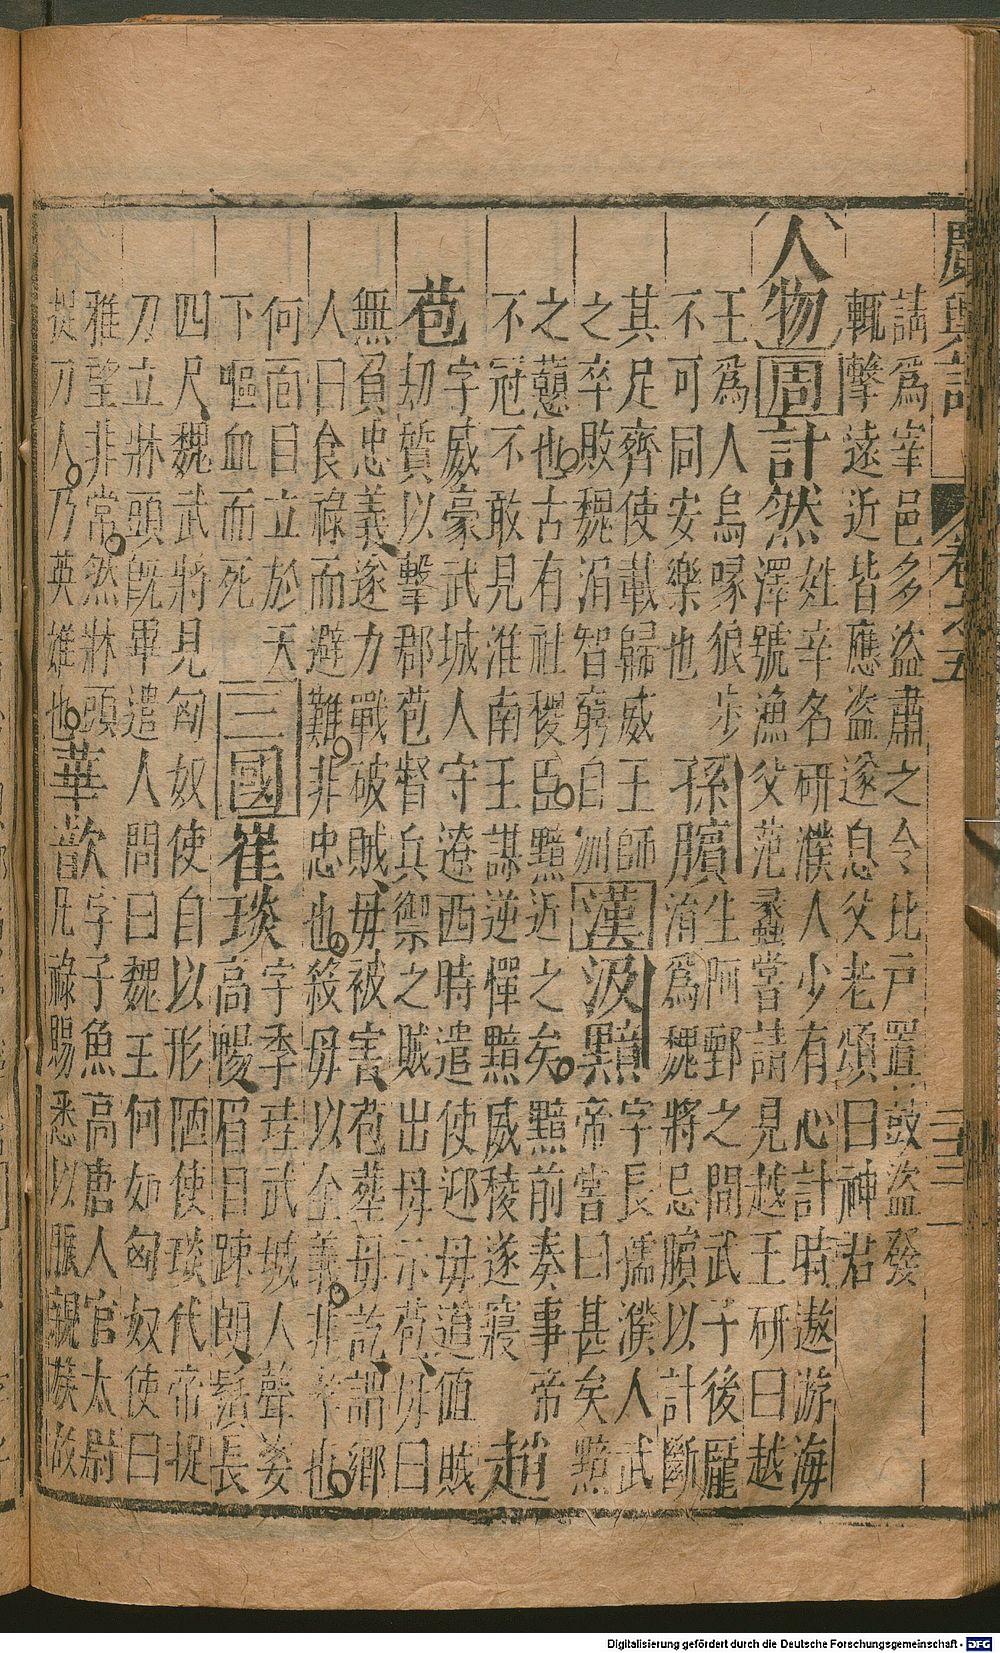 廣輿記 卷之五 二三
譸爲宰邑多盜肅之令比戶置鼓盜發
輒擊遠近皆應盜遂息父老頌曰神君
人物 周 計然
姓辛名研濮人少有心計時遨游海
澤號漁父范蠡嘗請見越王研曰越
王爲人烏喙狼步
不可同安樂也
孫臏
生阿鄄之間武子後龐
涓爲魏將忌臏以計斷
其足齊使載歸威王師
之卒敗魏涓智窮自刎
漢 汲黯
字長孺濮人武
帝嘗曰甚矣黯
之戇也古有社稷臣黯近之矣黯前奏事帝
不冠不敢見淮南王謀逆憚黯威稜遂寢
趙
苞
字威豪武城人守遼西時遣使迎母道値賊
劫質以擊郡苞督兵禦之賊出母示苞母曰
無負忠義遂力戰破賊母被害苞葬母訖謂鄉
人曰食祿而避難非忠也殺母以全義非孝也
何面目立於天
下嘔血而死
三國 崔琰
字季珪武城人聲姿
高暢眉目踈朗鬚長
四尺魏武將見匈奴使自以形陋使琰代帝捉
刀立牀頭旣畢遣人問曰魏王何如匈奴使曰
雅望非常然牀頭
捉刀人乃英雄也
華歆
字子魚高唐人官太尉
凡祿賜悉以賑親族故
Digitalisierung gefördert durch die Deutsche Forschungsgemeinschaft - DFG